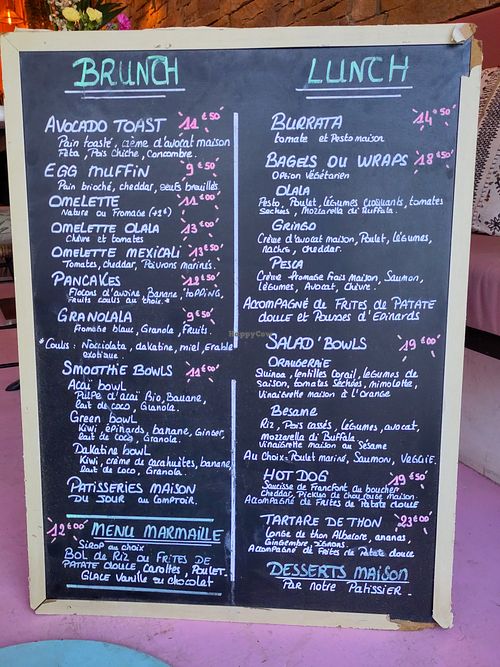 BRUNCH
AVOCADO TOAST 11€50
Pain toasté, crème d'avocat maison
Feta, Pois chiche, Concombre.
EGG MUFFIN 9€50
Pain brioché, cheddar, oeufs brouillés
OMELETTE 11€00
Nature ou Fromage (+1€)
OMELETTE OLALA 13€00
Chèvre et tomates
OMELETTE MEXICALI 13€50
Tomates, cheddar, Poivrons marinés.
PANCAKES 12€50
Flocons d'avoine, Banane, TOPPING,
Fruits coulis au choix.*
GRANOLALA 9€50
Fromage blanc, Granola, Fruits.
*Coulis : Nocciolata, dakatine, miel, Erable
exotique.
SMOOTHIE BOWLS 11€00
Açaï bowl
Pulpe d'açai Bio, Banane,
lait de coco, Granola.
Green bowl
Kiwi, épinards, banane, Ginger,
lait de coco, Granola.
Dakatine bowl
Kiwi, crème de cacahuètes, banane,
lait de Coco, Granola.
PATISSERIES MAISON
DU JOUR au COMPTOIR.
12€00 MENU MARMAILLE
SIROP au choix
BOL de RIZ ou FRITES DE
PATATE DOUCE CAROTTES, POULET.
GLACE VANILLE ou CHOCOLAT
LUNCH
BURRATA 14€50
tomate et Pesto maison
BAGELS OU WRAPS 18€50
OPTION VÉGÉTARIEN
OLALA
Pesto, Poulet, légumes croquants, tomates
Sechées, Mozzarella di Buffala.
GRINGO
Crème d'avocat maison, Poulet, légumes,
Nachos, cheddar.
PESCA
Crème fromage Frais maison, Saumon,
Légumes, Avocat, Chèvre.
ACCOMPAGNÉ de FRITES de PATATE
DOUCE et POUSSES D'EPINARDS
HappyCow
SALAD'BOWLS 19€00
ORANGERAIE
Quinoa, lentilles Corail, légumes de
saison, tomates Séchées, mimolette,
Vinaigrette maison à L'orange
BÉSAME
Riz, Pois cassés, légumes, avocat,
Mozzarella di Buffala
Vinaigrette maison au Sésame
Au choix: Poulet mariné, Saumon, Veggie.
HOT DOG 19€50
Saucisse de Francfort du boucher
cheddar, Pickles de chou rouge maison.
Accompagné de Frites de Patate douce
TARTARE DE THON 23€00
Longe de thon Albacore, ananas,
Gingembre, oignons.
Accompagné de Frites de Patate douce.
DESSERTS MAISON
Par notre Patissier.